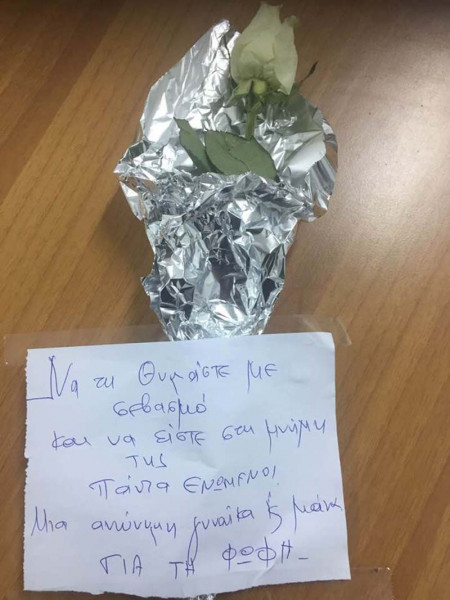 Να τη θυμάστε με
σεβασμό
και να είστε στη μνήμη
της
πάντα ΕΝΩΜΕΝΟΙ
Μια ανώνυμη γυναίκα & μάνα
ΓΙΑ ΤΗ ΦΩΦΗ